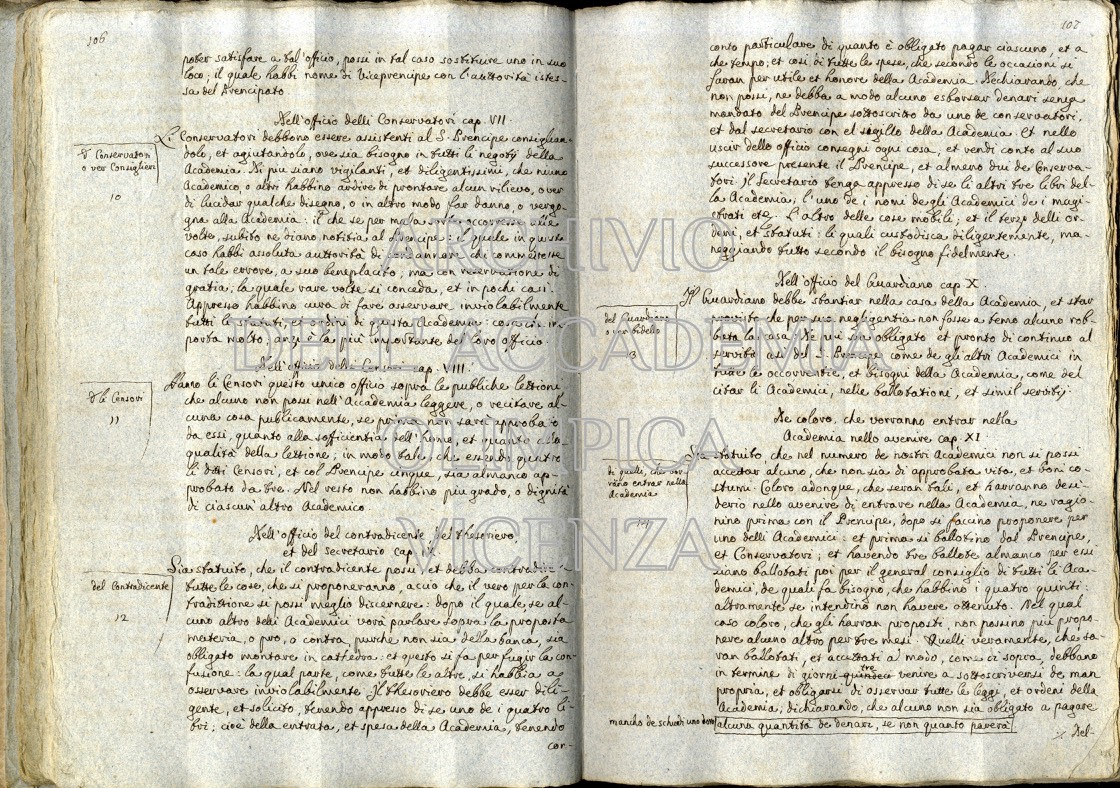 106
poter satisfare a tal'officio, possi in tal caso sostituire uno in suo
loco; il quale habbi nome di Viceprencipe con l'auttorità istes-
sa del Prencipato
Nell'officio delli Conservatori cap. VII.
Li Conservatori debbono essere assistenti al S. Prencipe consiglian-
dolo, et agiutandolo, ove sia bisogno in tutti li negotij della
Academia. Di piu siano vigilanti, et diligentissimi, che niuno
Academico, o altri habbino ardire di prontare alcun rilievo, over
di lucidar qualche disegno, o in altro modo far danno, o vergo-
gna alla Academia: il che se per mala sorte occorresse alle
volte, subito ne diano notitia al Prencipe: il quale in questo
caso habbi assoluta auttorità di condannare chi commettesse
un tale errore, a suo beneplacito, ma con reservatione di
gratia; la quale rare volte si conceda, et in pochi casi.
Appresso habbino cura di fare osservare inviolabilmente
tutti li statuti, et ordini di questa Academia: cosa che im-
porta molto, anzi è la più importante del loro officio.
d' Conservatori
o ver Consiglieri
10
Nell'officio delli Censori cap. VIII.
Hanno li Censori questo unico officio sopra le publiche lettioni
che alcuno non possi nell'Academia leggere, o recitare al-
cuna cosa publicamente, se prima non sarà approbato
da essi, quanto alla sofficientia dell'home, et quanto alla
qualità della lettione; in modo tale, che essendo quattro
li detti Censori, et col Prencipe cinque, sia almanco ap-
probato da tre. Nel resto non habbino piu grado, o dignità
di ciascun altro Academico.
d' li Censori
11
Nell'officio del contradicente, del thesoriero,
et del secretario cap. IX.
Sia statuito, che il contradicente possi, et debba contradire
tutte le cose, che si proponeranno, acciò che il vero per la con-
tradittione si possi meglio discernere: dopo il quale, se al-
cuno altro delli Academici vorà parlare sopra la proposta
materia, o pro, o contra, purche non sia della banca, sia
obligato montare in cathedra: et questo si fa per fugir la con-
fusione: la qual parte, come tutte le altre, si habbia ad
osservare inviolabilmente. Il thesoriero debbe esser dili-
gente, et solicito, tenendo appresso di se uno de i quatro li-
bri; cioè della entrata, et spesa della Academia, tenendo
con-
del Contradicente
12
107
conto particulare di quanto è obligato pagar ciascuno, et a
che tempo; et così di tutte le spese, che secondo le occasioni si
faran per utile et honore della Academia. Dechiarando, che
non possi, ne debba a modo alcuno esborsar denari senza
mandato del Prencipe sottoscritto da uno de conservatori,
et dal secretario con el sigillo della Academia. Et nello
uscir dello officio consegni ogni cosa, et rendi conto al suo
successore presente il Prencipe, et almeno dui de Conserva-
tori. Il Secretario tenga appresso di se li altri tre libri del-
la Academia; l'uno de i nomi de gli Academici de i magi-
strati etc. l'altro delle cose mobile; et il terzo delli or-
deni, et statuti: li quali custodisca diligentemente, ma-
neggiando tutto secondo il bisogno fidelmente.
Nell'officio del Guardiano cap. X.
Il Guardiano debbe stantiar nella casa della Academia, et star
provisto che per sua negligentia non fosse a tempo alcuno rob-
bata la casa. Di piu sia obligato et pronto di continuo al
servitio così del S. Prencipe come de gli altri Academici in
tutte le occorrentie, et bisogni della Academia, come del
citar li Academici, nelle ballotationi, et simil servitij
del Guardiano
o ver bidello
13
De coloro, che vorranno entrar nella
Academia nello avenire cap. XI.
Sia statuito che nel numero de nostri Academici non si possi
accettar alcuno, che non sia di approbata vita, et boni co-
stumi. Coloro adonque, che seran tali, et harranno desi-
derio nello avenire di entrare nella Academia, ne ragio-
nino prima con il Prencipe, dopo si faccino proponere per
uno delli Academici: et prima si ballotino dal Prencipe,
et Conservatori; et havendo tre ballote almanco per essi
siano ballotati poi per il general consiglio di tutti li Aca-
demici, de quali fa bisogno, che habbino i quatro quinti:
altramente se intendino non havere ottenuto. Nel qual
caso coloro, che gli harran proposti, non possino piu propo-
nere alcuno altro per tre mesi. Quelli veramente, che sa-
ran ballotati, et accettati a modo, come di sopra, debbano
in termine di giorni quindeci tre venire a sottoscriversi de man
propria, et obligarsi di osservar tutte le leggi, et ordeni della
Academia; dichiarando, che alcuno non sia obligato a pagare
alcuna quantità de denari, se non quanto parerà
di quelli, che vor-
rano entrar nella
Academia
14
mancho de schudi uno doro
Nel-
ARCHIVIO
DELL'ACCADEMIA
OLIMPICA
VICENZA